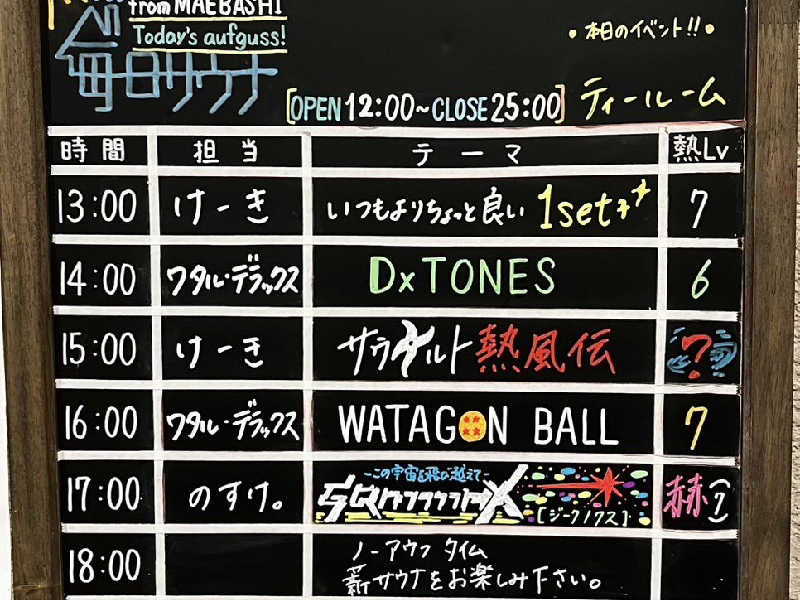 from MAEBASHI
Today's aufguss!
毎日サウナ
•本日のイベント!!•
[OPEN 12:00~CLOSE 25:00]
ティールーム
時間 担当 テーマ 熱Lv
13:00 けーき いつもよりちょっと良い 1set 7
14:00 ワタル・デラックス DxTONES 6
15:00 けーき サウナルト 熱風伝 ?
16:00 ワタル・デラックス WATAGON BALL 7
17:00 のすけ。
-この宇宙を飛び越えて-
X
[ジークノクス]
赫
18:00 ノーアウフ タイム
薪サウナをお楽しみ下さい。